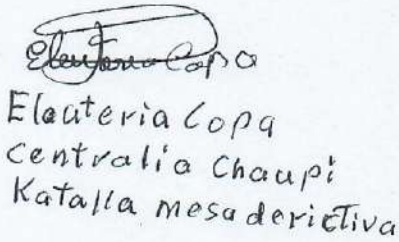 Eleuteria Copa
Eleuteria Copa
Centralia Chaupi
Katalla mesa derictiva